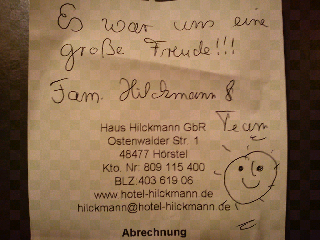 Es war uns eine
große Freude!!!
Fam. Hilckmann &
Team
Haus Hilckmann GbR
Ostenwalder Str. 1
48477 Hörstel
Kto. Nr: 809 115 400
BLZ:403 619 06
www.hotel-hilckmann.de
hilckmann@hotel-hilckmann.de
Abrechnung